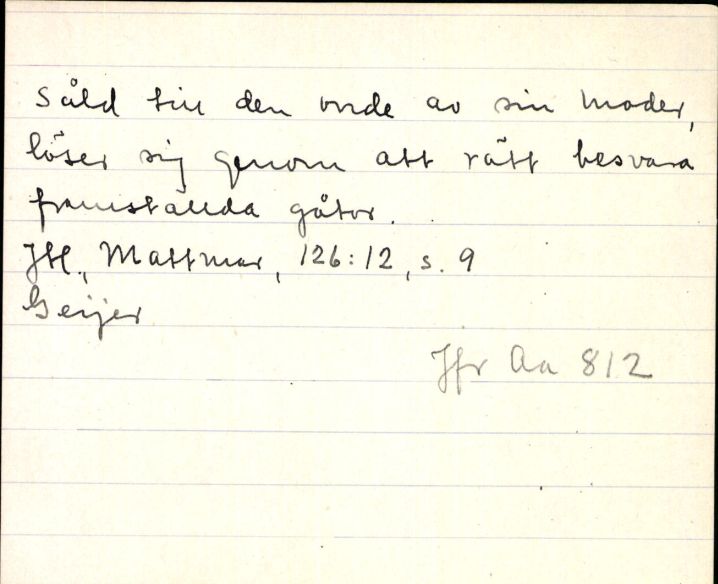 Såld till den onde av sin moder,
löser sig genom att rätt besvara
framställda gåtor.
Jtl., Mattmar, 126:12, s. 9
Geijer
Jfr Aa 812